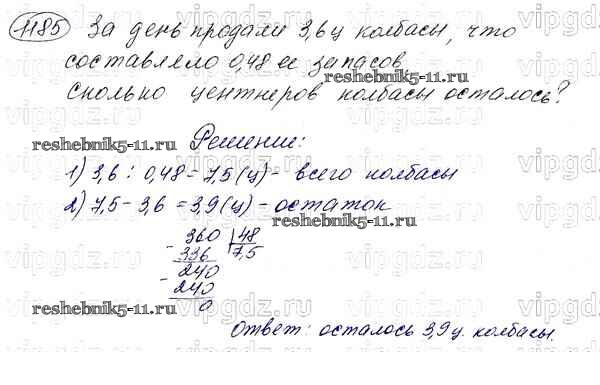 1185 За день продали 3,6ц колбасы, что
составляло 0,48 ее запасов,
сколько центнеров колбасы осталось?
reshebnik5-11.ru
Решение:
reshebnik5-11.ru
1) 3,6 : 0,48 = 7,5 (ц) - всего колбасы
2) 7,5 - 3,6 = 3,9 (ц) - остаток
reshebnik5-11.ru
- 360 | 48
336 7,5
- 240
240
0
reshebnik5-11.ru
Ответ: осталось 3,9 ц. колбасы.
vipgdz.ru